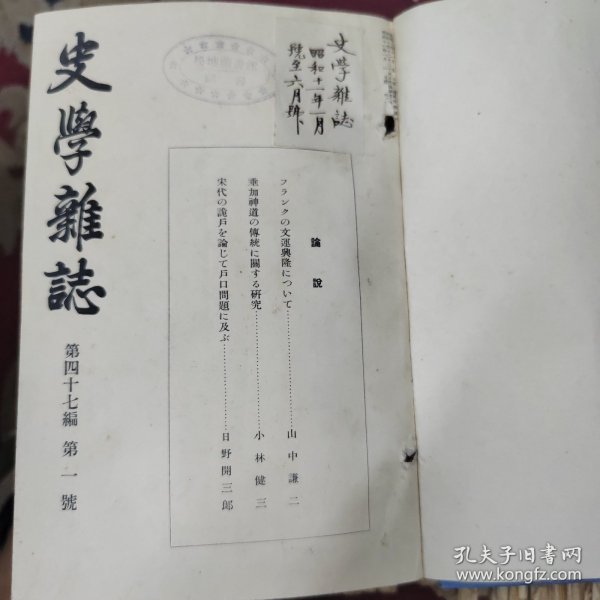 史學雜誌
昭和十一年一月
號至六月號
論說
フランクの文運興隆について…………山中謙二
垂加神道の傳統に關する硏究…………小林健三
宋代の詭戶を論じて戶口問題に及ぶ…………日野開三郎
史學雜誌
第四十七編 第一號
孔夫子旧书网
www.kongfz.com